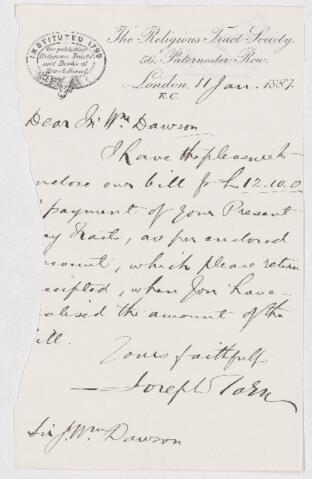 INSTITUTED 1799
For publishing
Religious Tracts
and Books at
Home & Abroad
The Religious Tract Society.
56, Paternoster Row.
London, 11 Jan. 1887.
E.C.
Dear Sir Wm Dawson
I have the pleasure to
nclose our bill for £12.10.0
payment of your Present
ay Tracts, as per enclosed
count, which please return
ceipted, when you have
alised the amount of the
ill.
Yours faithfully
Joseph
Sir J. Wm Dawson